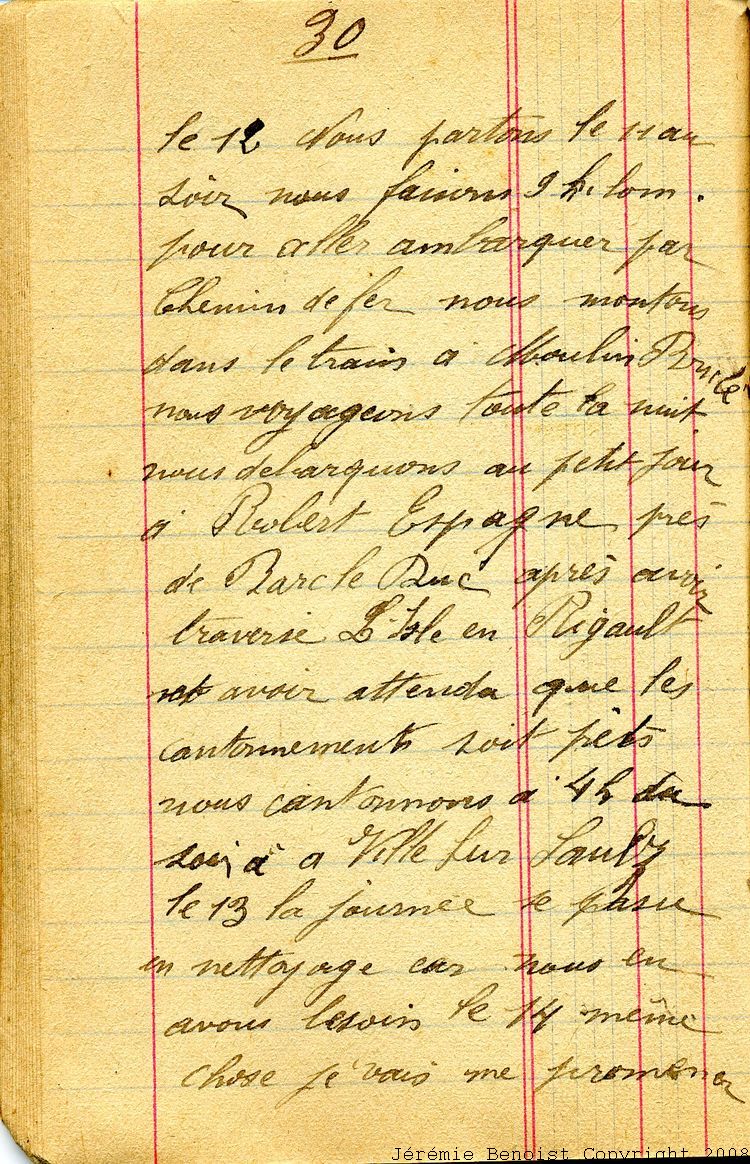 30
le 12 Nous partons le 11 au
soir nous faisons 9 k. lom.
pour aller ambarquer par
Chemin de fer nous montons
dans le train a Moulin Brulé
nous voyageons toute la nuit
nous debarquons au petit jour
a Robert Espagne près
de Bar le Duc après avoir
traversé L'Isle en Rigault
et avoir attendu que les
cantonnements soit prèts
nous cantonnons a 4h du
soir a Ville Sur Saulx
le 13 la journée se passe
en nettoyage car nous en
avons besoin le 14 même
chose je vais me promener
Jérémie Benoist Copyright 2008